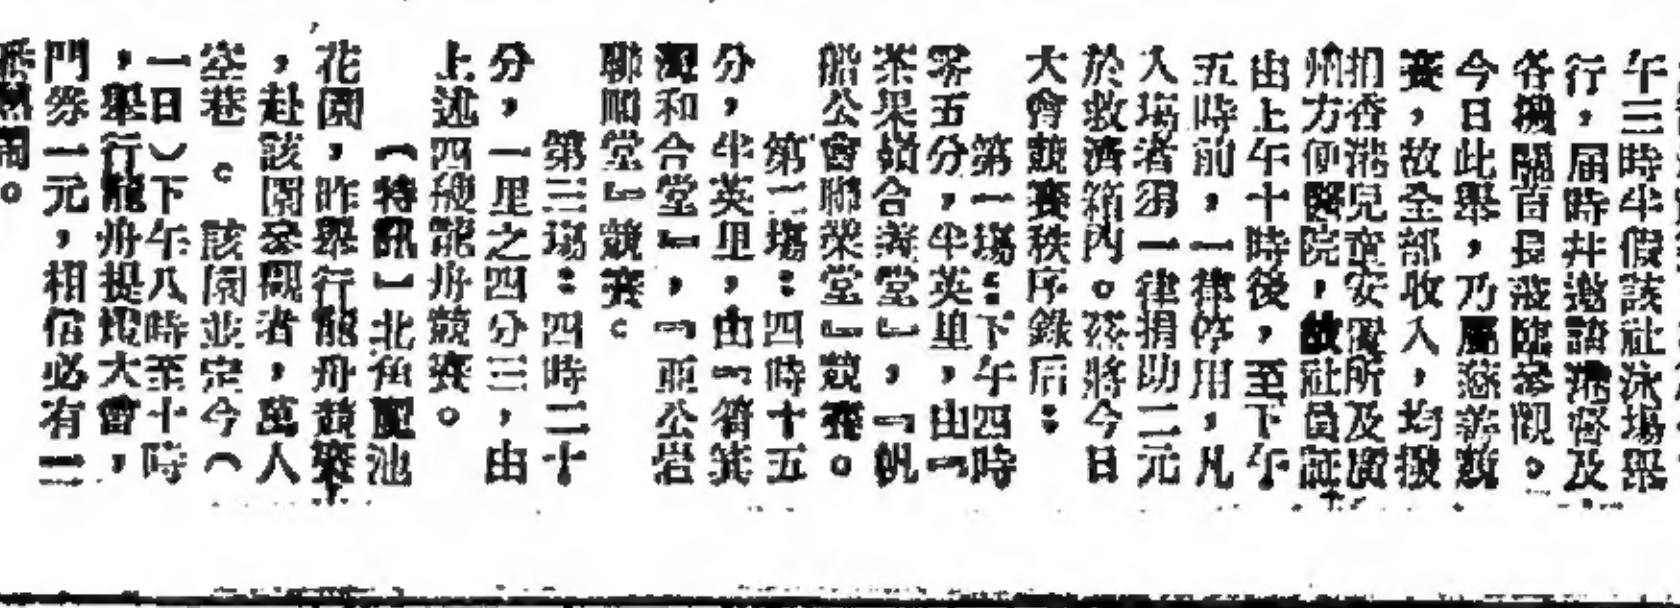 午三時半假該社泳場舉
行，屆時并邀請港督及
各機關首長蒞臨參觀。
今日此舉，乃屬慈善競
賽，故全部收入，均撥
捐香港兒童安置所及廣
州方便醫院，故社員証
由上午十時後，至下午
五時前，一律停用，凡
入塲者須一律捐助二元
於救濟箱內。茲將今日
大會競賽秩序錄后：
第一塲：下午四時
零五分，半英里，由『
茶果嶺合善堂』，『帆
船公會聯榮堂』競賽。
第二塲：四時十五
分，半英里，由『筲箕
灣和合堂』，『亞公岩
聯順堂』競賽。
第三塲：四時二十
分，一里之四分三，由
上述四艘龍舟競賽。
（特訊）北角麗池
花園，昨舉行龍舟競賽
，赴該園參觀者，萬人
空巷。該園並定今（
一日）下午八時至十時
，舉行龍舟提燈大會，
門券一元，相信必有一
番熱鬧。